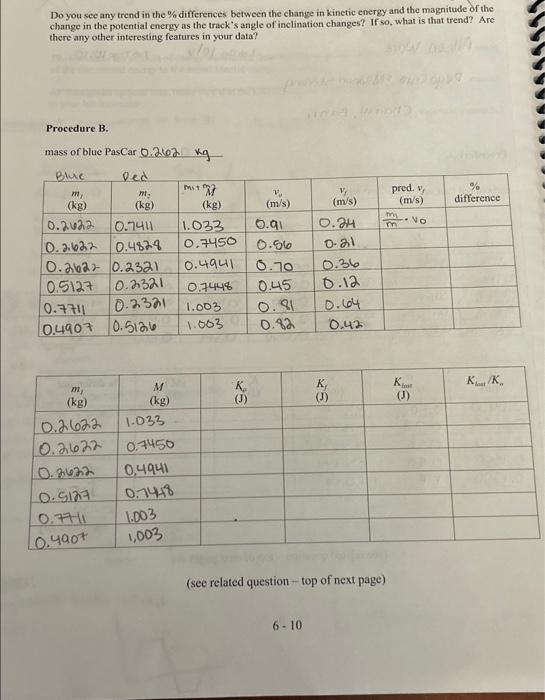 Do you see any trend in the % differences between the change in kinetic energy and the magnitude of the
change in the potential energy as the track's angle of inclination changes? If so, what is that trend? Are
there any other interesting features in your data?
Procedure B.
mass of blue PasCar 0.262 kg
Blue Red
m₁ (kg) m₂ (kg) m₁+m₂ M (kg) vₒ (m/s) v_f (m/s) pred. v_f (m/s) % difference
0.2622 0.7411 1.033 0.91 0.24 m₁/m · vo
0.2622 0.4828 0.7450 0.56 0.21
0.2622 0.2321 0.4941 0.70 0.36
0.5127 0.2321 0.7448 0.45 0.12
0.7711 0.2321 1.003 0.81 0.64
0.4907 0.5126 1.003 0.82 0.42
m₁ (kg) M (kg) Kₒ (J) K_f (J) K_lost (J) K_lost/Kₒ
0.2622 1.033
0.2622 0.7450
0.2622 0.4941
0.5127 0.7448
0.7711 1.003
0.4907 1,003
(see related question – top of next page)
6 - 10